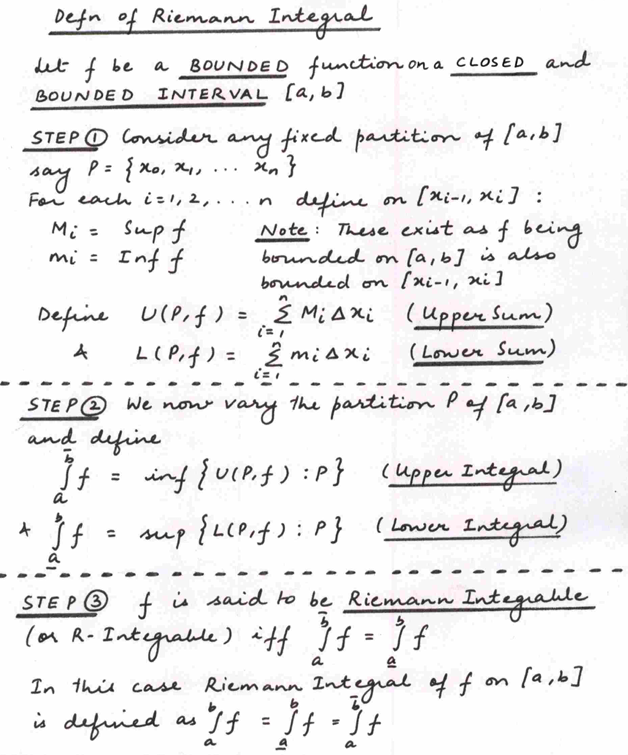 Defn of Riemann Integral
Let f be a BOUNDED function on a CLOSED and
BOUNDED INTERVAL [a,b]
STEP ① Consider any fixed partition of [a,b]
say P = {x₀, x₁, ... xₙ}
For each i=1,2,...n define on [xᵢ₋₁, xᵢ] :
Mᵢ = Sup f Note: These exist as f being
mᵢ = Inf f bounded on [a,b] is also
bounded on [xᵢ₋₁, xᵢ]
Define U(P,f) = ∑ᵢ₌₁ⁿ Mᵢ Δxᵢ (Upper Sum)
& L(P,f) = ∑ᵢ₌₁ⁿ mᵢ Δxᵢ (Lower Sum)
STEP ② We now vary the partition P of [a,b]
and define
∫ₐ^b̄ f = inf {U(P,f) : P} (Upper Integral)
& ∫_a̲^b f = sup {L(P,f) : P} (Lower Integral)
STEP ③ f is said to be Riemann Integrable
(or R-Integrable) iff ∫ₐ^b̄ f = ∫_a̲^b f
In this case Riemann Integral of f on [a,b]
is defined as ∫ₐ^b f = ∫_a̲^b f = ∫ₐ^b̄ f